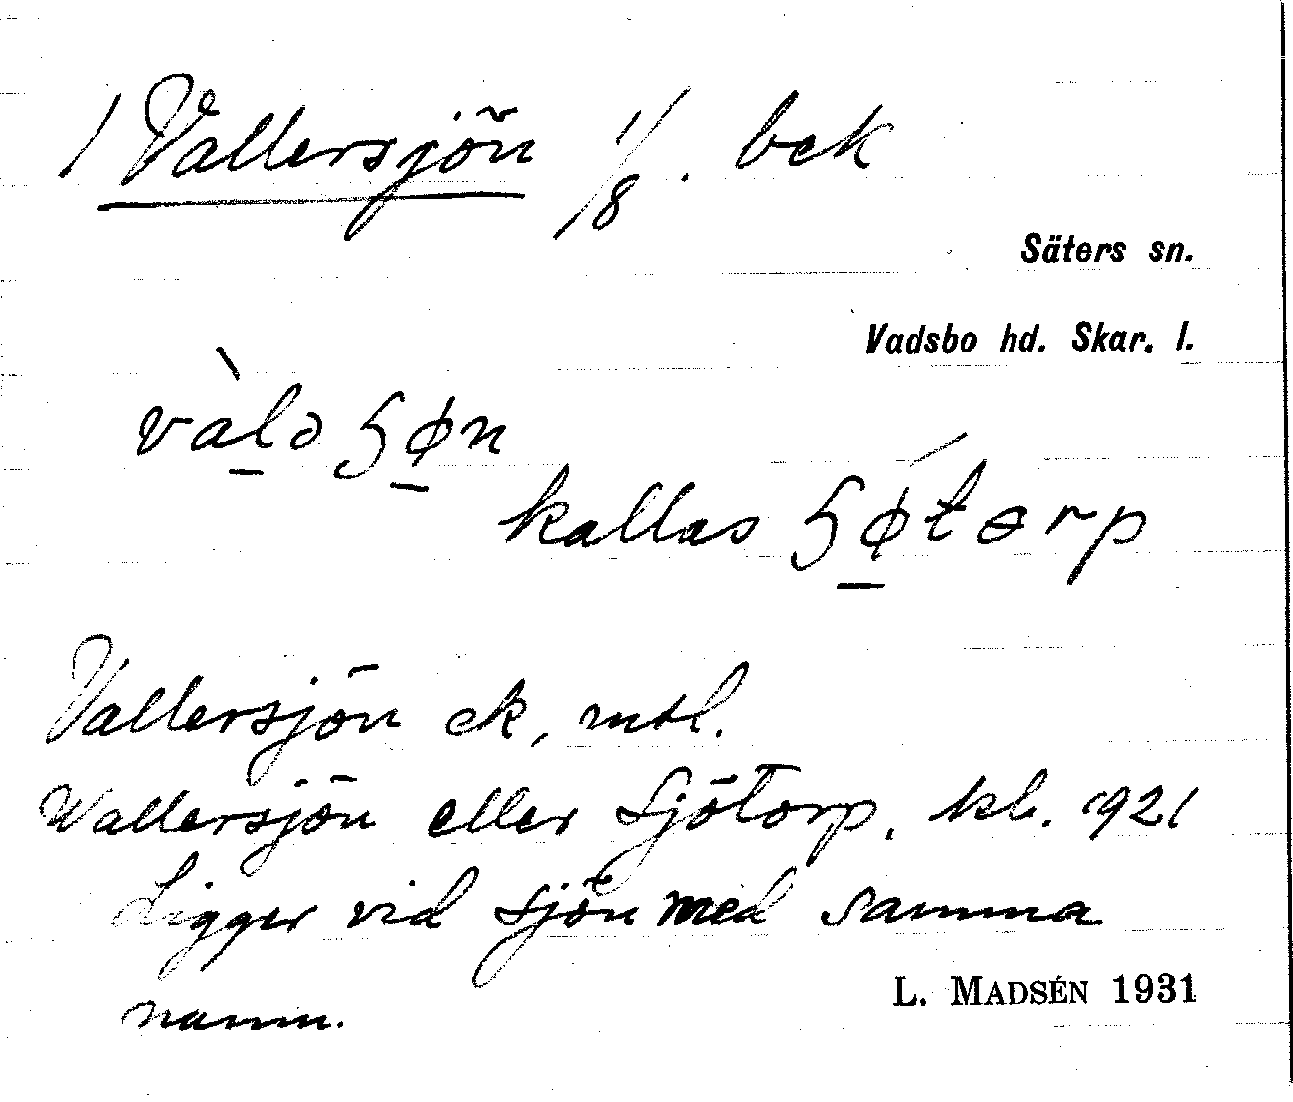 1 Vallersjön 1/8. bek
Säters sn.
Vadsbo hd. Skar. l.
kallas
Vallersjön ek, mtl.
Wallersjön eller Sjötorp, kb. 1921
Ligger vid sjön med samma
namn.
L. MADSÉN 1931